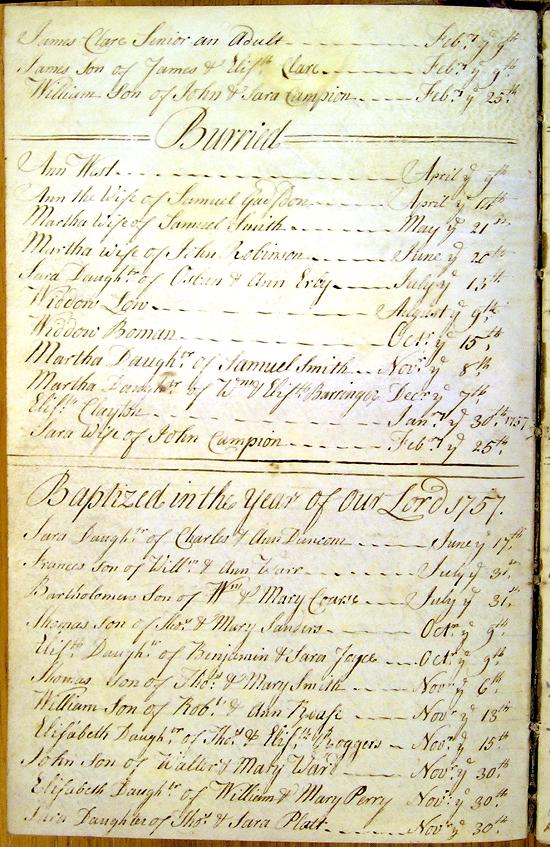 James Clare Senior an Adult Febry ye 9th
James Son of James & Elisth Clare Febry ye 9th
William Son of John & Sara Campion Febry ye 25th
Burried
Ann West April ye 9th
Ann the Wife of Samuel April ye 17th
Martha Wife of Samuel Smith May ye 21st
Martha wife of John Robinson June ye 20th
Sara Daughtr of & Ann July ye 13th
Widdow Low August ye 9th
Widdow Boman Octr ye 15th
Martha Daughtr of Samuel Smith Novr ye 8th
Martha Daughtr of Wm & Elisth Barringer Decr ye 7th
Elisth Clayton Janry ye 30th 1757
Sara Wife of John Campion Febry ye 25th
Baptized in the Year of our Lord 1757.
Sara Daughtr of Charles & Ann June ye 17th
Frances Son of Willm & Ann Warr July ye 3d
Bartholomew Son of Wm & Mary Coarse July ye 31st
Thomas Son of Thos & Mary Sanders Octr ye 9th
Elisth Daughtr of Benjamin & Sara Joyce Octr ye 9th
Thomas Son of Thos & Mary Smith Novr ye 6th
William Son of Robt & Ann Novr ye 13th
Elisabeth Daughtr of Thos & Elisth Novr ye 15th
John Son of Walter & Mary Ward Novr ye 30th
Elisabeth Daughtr of William & Mary Perry Novr ye 30th
Sara Daughter of Thos & Sara Platt Novr ye 30th